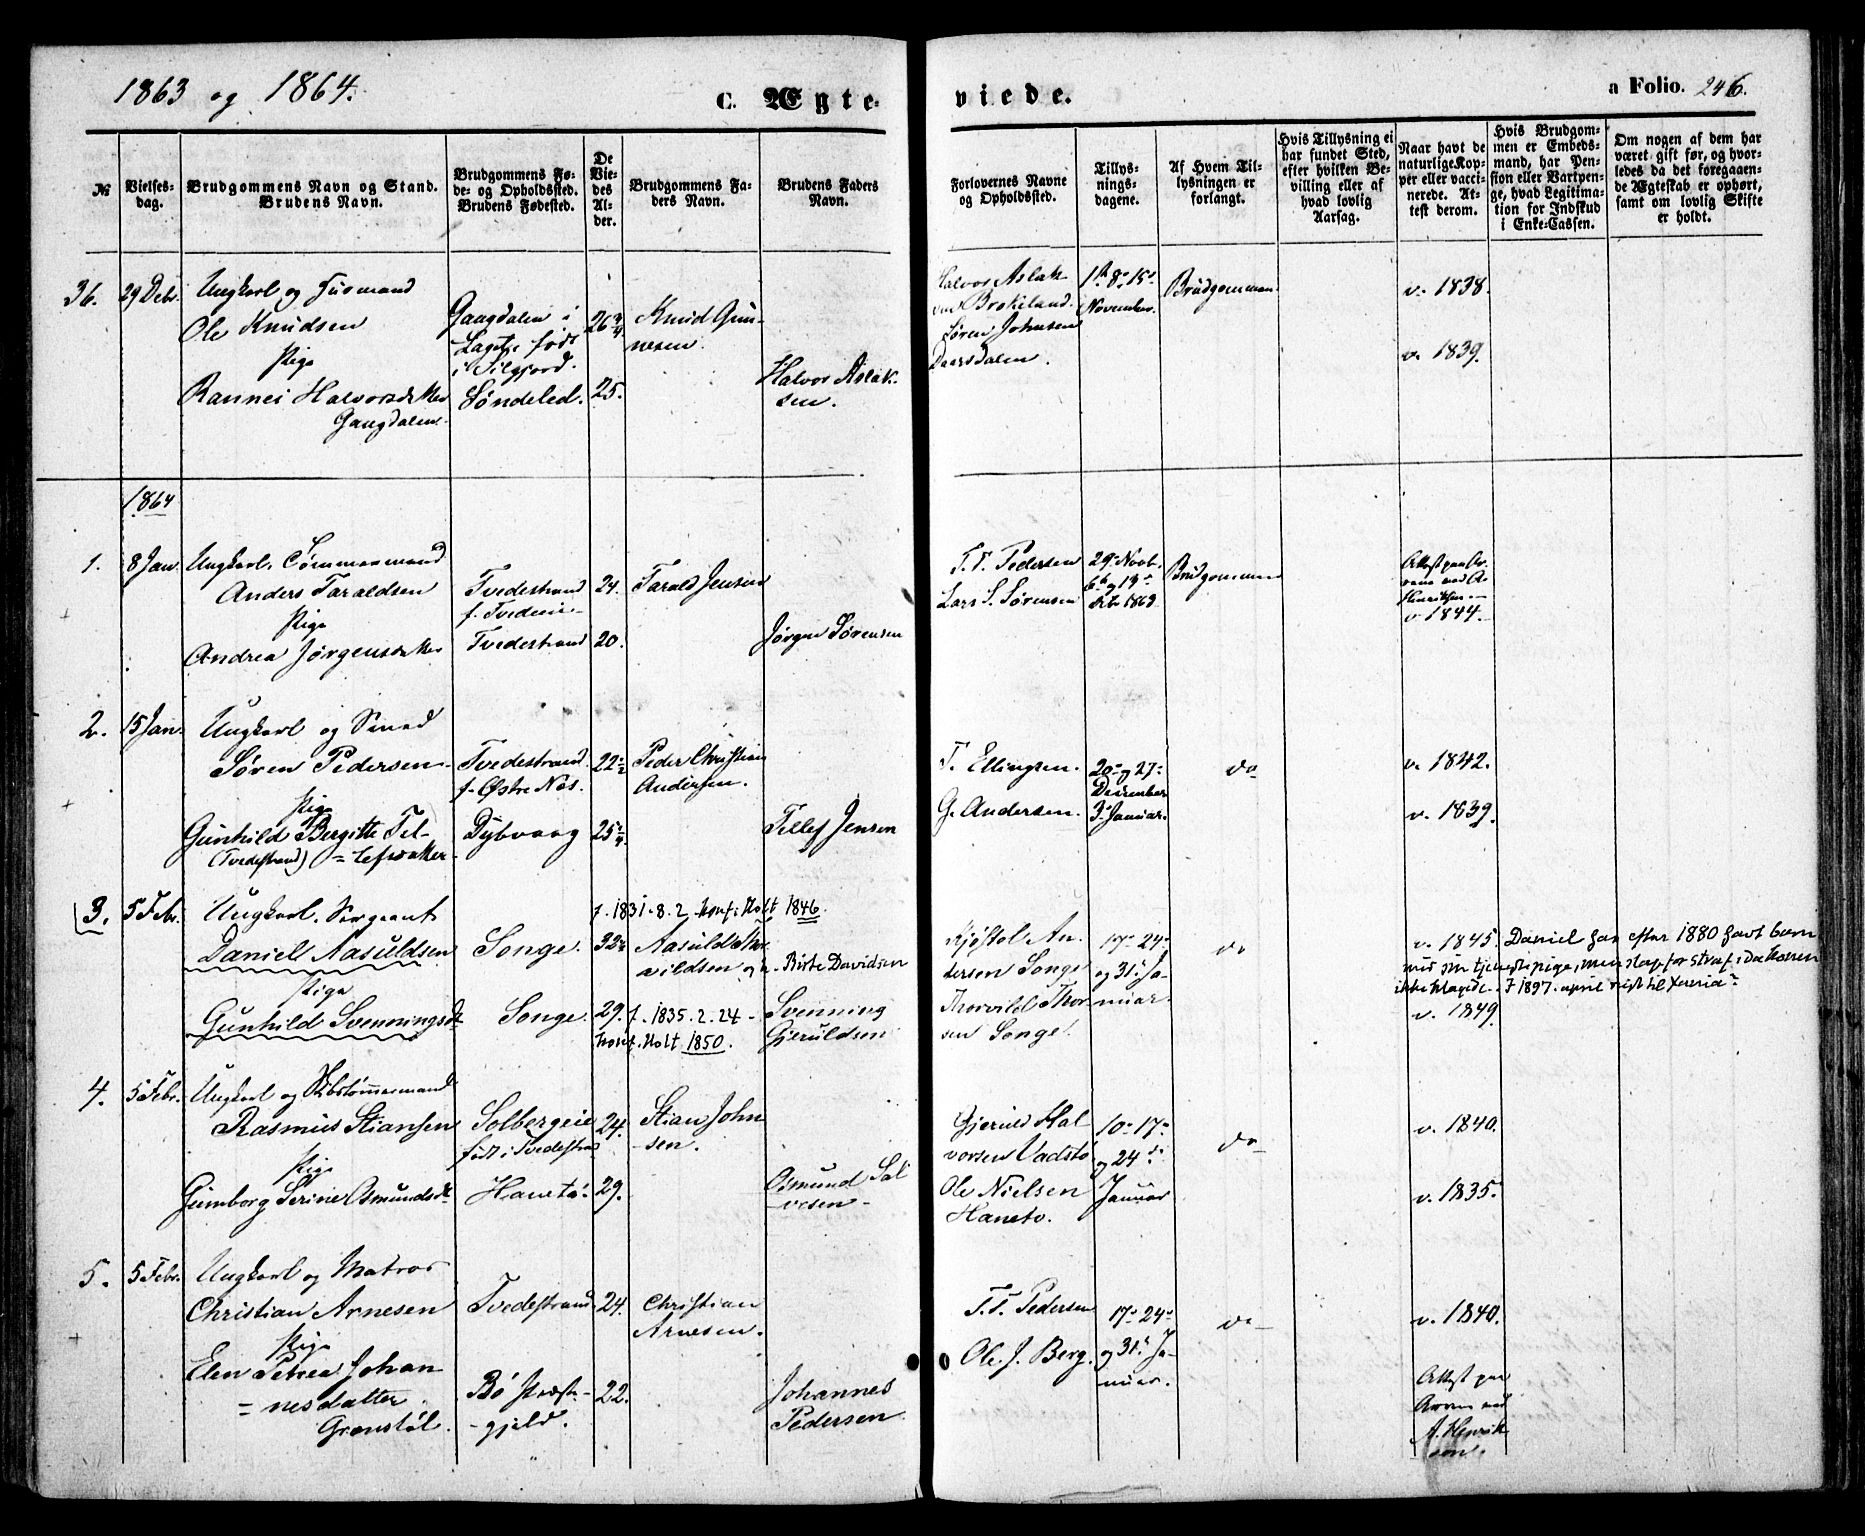 1863 og 1864.
C. Ægte-
viede.
a Folio. 246.
№
Vielses-
dag.
Brudgommens Navn og Stand.
Brudens Navn.
Brudgommens Fø-
de- og Opholdssted.
Brudens Fødested.
De
Vie-
des
Al-
der.
Brudgommens Fa-
ders Navn.
Brudens Faders
Navn.
Forlovernes Navne
og Opholdssted.
Tillys-
nings-
dagene.
Af Hvem Til-
lysningen er
forlangt.
Hvis Tillysning ei
har fundet Sted,
efter hvilken Be-
villing eller af
hvad lovlig
Aarsag.
Naar havt de
naturlige Kop-
per eller vacci-
nerede. At-
test derom.
Hvis Brudgom-
men er Embeds-
mand, har Pen-
sion eller Vartpen-
ge, hvad Legitima-
tion for Indskud
i Enke-Cassen.
Om nogen af dem har
været gift før, og hvor-
ledes da det foregaaen-
de Ægteskab er ophørt,
samt om lovlig Skifte
er holdt.
36. 29 Debr. Ungkarl og Husmand
Ole Knudsen
Pige
Rannei Halvorsdatter
Gaagdalen
Gaagdalen i
født
Søndeled.
26 3/4
25.
Knud Gun-
nesen.
Halvor Aslak-
sen.
Halvor Aslak-
Brokeland.
Søren Johnsen
Daarsdalen.
1st 8de 15de
November.
Brudgommen
v. 1838.
v. 1839.
1864
1. 8 Jan. Ungkarl, Tømmermand
Anders Taraldsen
Pige
Andrea Jørgensdatter
Tvedestrand
Tvedestrand
24.
20.
Tarald Jensen
Jørgen Sørensen
T. T. Pedersen
Lars S. Sørensen
29de Novb.
6te og 13de
Dcbr 1863
Brudgommen
Attest paa
Henriksen
v. 1844.
2. 15 Jan. Ungkarl og Smed
Søren Pedersen
Pige
Gunhild Bergitte Tel-
(Tvedestrand) = lefsdatter
Tvedestrand
f. Østre Næs.
Dybvaag
22 1/2
25 1/4
Peder Christian
Andersen.
Tellef Jensen
T. Ellingsen.
G. Andersen.
20de og 27de
December
3die Januar.
do
v. 1842.
v. 1839.
3. 5 Febr. Ungkarl, Sergeant
Daniel Aasuldsen
Pige
Gunhild Svenningsdt
Songe.
Songe.
f. 1831.8.2 konf. i Holt 1846.
32
29. f. 1835.2.24
konf. Holt 1850.
Aasuld Thor-
vildsen og
Birte Davidsen
Svenning
Gjeruldsen
Kjøstol An-
dersen Songe
Thorvild Thor-
sen Songe.
17de 24de
og 31te Ja-
nuar.
do
v. 1845. Daniel har efter 1880 havt barn
med sin tjenestepige, men slap for straf, da konen
ikke klagede. I 1897 april rejst til
v. 1849.
4. 5 Febr. Ungkarl og Skibstømmermand
Rasmus Stiansen
Pige
Gumborg Serine Osmundsdt.
Solbergeie
født i Tvedestrand
Hanetø
24.
29.
Stian John
-sen.
Osmund Sal
-vesen-
Gjeruld Hal
vorsen Vadstø
Ole Nielsen
Haneto.
10de 17de
og 24de
Januar
do
v. 1840.
v. 1835.
5. 5 Febr. Ungkarl og Matros
Christian Arnesen
Pige
Elen Petrea Johan
= nesdatter.
Grønstøl.
Tvedestrand
Bø Præste-
-gjeld.
24.
22.
Christian
Arnesen.
Johannes
Pedersen
T. T. Pedersen
Ole J. Berg.
17de 24de
og 31te Ja-
nuar.
do
v. 1840.
Attest paa
A. Henrik
sen